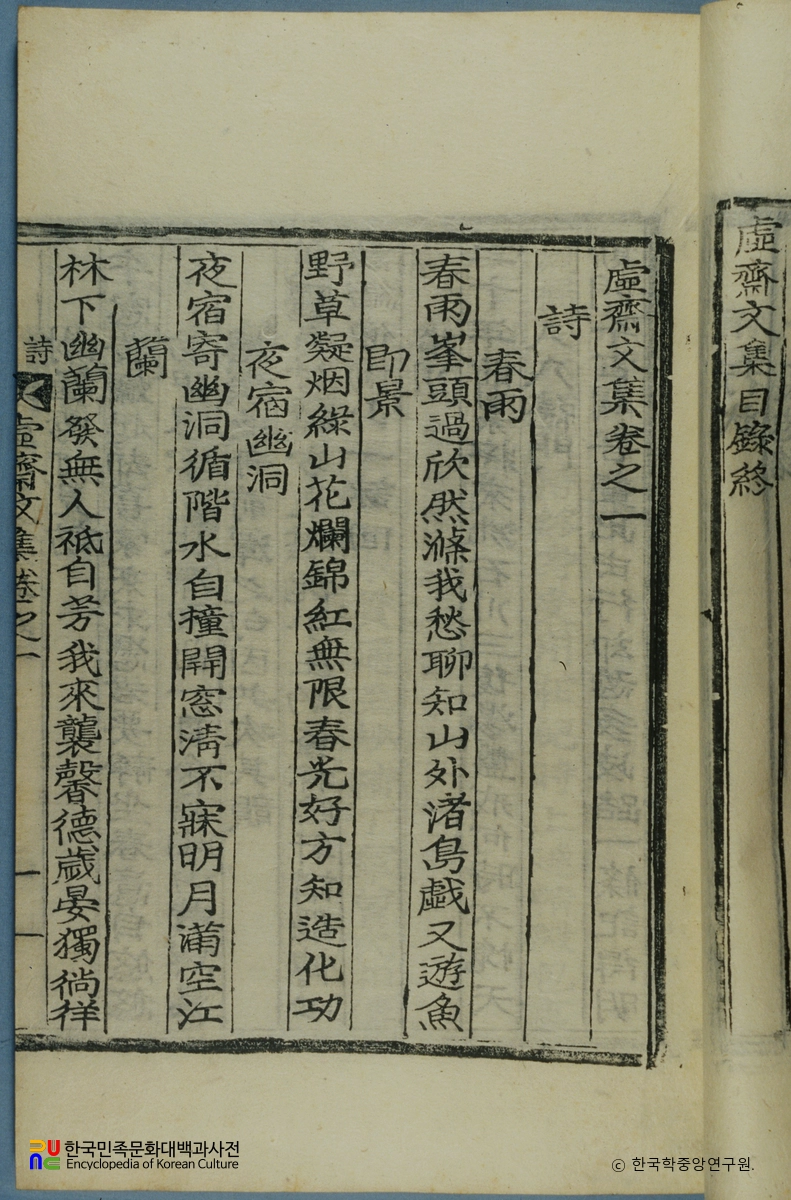 虛齋文集目錄終
虛齋文集卷之一
詩
春雨
春雨峯頭過欣然滌我愁聊知山外渚鳥戱又遊魚
即景
野草凝烟綠山花爛錦紅無限春光好方知造化功
夜宿幽洞
夜宿寄幽洞循階水自撞開窓淸不寐明月滿空江
蘭
林下幽蘭發無人袛自芳我來襲馨德歲晏獨徜徉
詩
虛齋文集卷之一
한국민족문화대백과사전
Encyclopedia of Korean Culture
ⓒ 한국학중앙연구원.